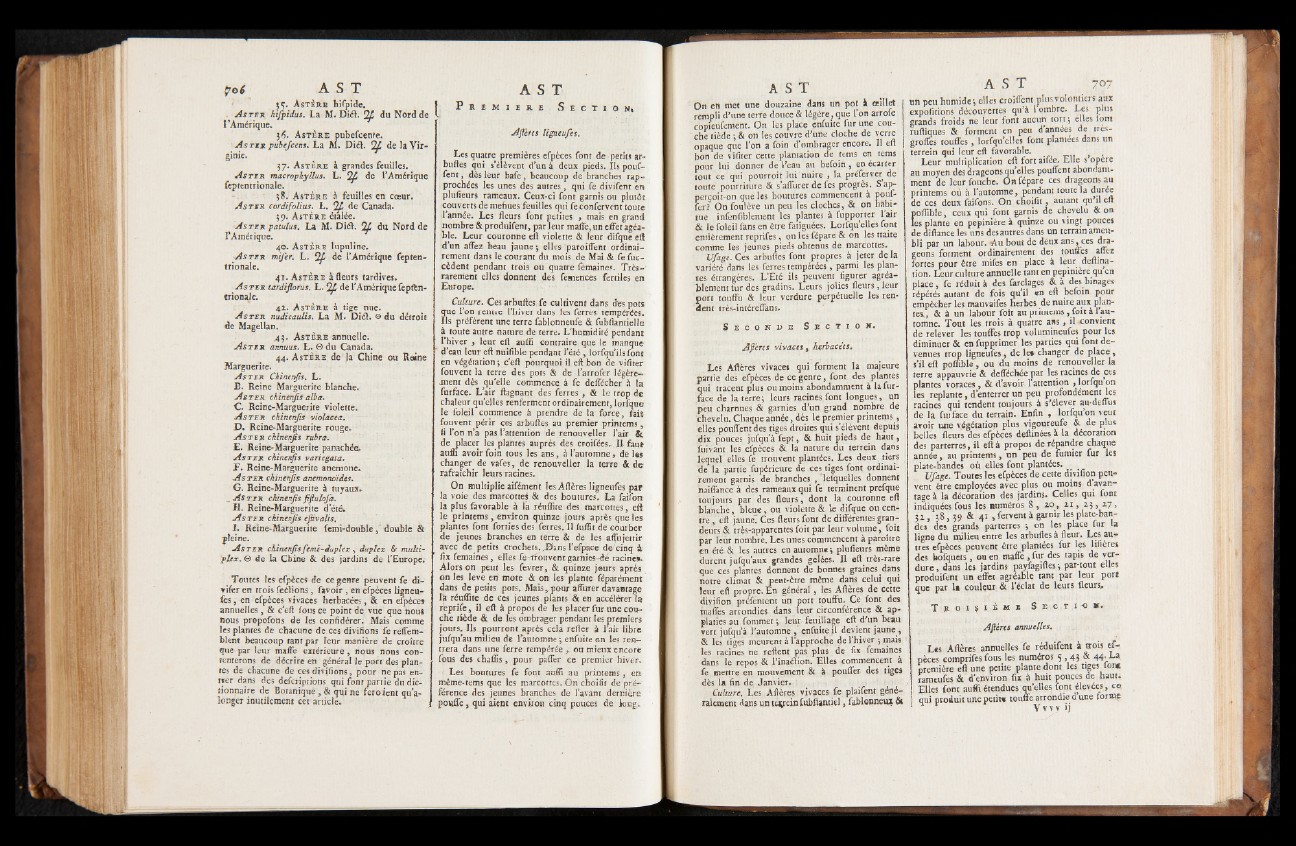 706 A S T
35. ASTÈRE hiſpide.
ASTER hiſpidus. La M. Dict. ♃ du Nord de
l'Amérique.
36. ASTÈRE pubeſcente.
ASTER pubeſcens. La M. Dict. ♃ de la Vir-
ginie.
37. ASTÈRE à grandes feuilles.
ASTER macrophyllus. L. ♃ de l'Amérique
ſeptentrionale.
38. ASTÈRE à feuilles en cœur.
ASTER cordifolius. L. ♃ de Canada.
39. ASTÈRE étalée.
ASTER patulus. La M. Dict. ♃ du Nord de
l'Amérique.
40. ASTÈRE lupuline.
ASTER miſer. L. ♃ de l'Amérique ſepten-
trionale.
41. ASTÈRE à fleurs tardives.
ASTER tardiflorus. L. ♃ de l'Amérique ſepten-
trionale.
42. ASTÈRE à tige nue.
ASTER nudicaulis. La M. Dict. ☉ du détroit
de Magellan.
43. ASTÈRE annuelle.
ASTER annuus. L. ☉ du Canada.
44. ASTÈRE de la Chine ou Reine
Marguerite.
ASTER Chinenſis. L.
B. Reine Marguerite blanche.
ASTER chinenſis alba.
C. Reine-Marguerite violette.
ASTER chinenſis violacea.
D. Reine-Marguerite rouge.
ASTER chinenſis rubra.
E. Reine-Marguerite panachée.
ASTER chinenſis variegata.
F. Reine-Marguerite anemone.
ASTER chinenſis anemonoides.
G. Reine-Marguerite à tuyaux.
ASTER chinenſis fiſtuloſa.
H. Reine-Marguerite d'été.
ASTER chinenſis eſtivalis.
I. Reine-Marguerite ſemi-double, double &
pleine.
ASTER chinenſis ſemi-duplex, duplex & multi-
plex. ☉ de la Chine & des jardins de l'Europe.
Toutes les eſpèces de ce genre peuvent ſe di-
viſer en trois ſections, ſavoir, en eſpèces ligneu-
ſes, en eſpèces vivaces herbacées, & en eſpèces
annuelles, & c'eſt ſous ce point de vue que nous
nous propoſons de les conſidérer. Mais comme
les plantes de chacune de ces diviſions ſe reſſem-
blent beaucoup tant par leur manière de croître
que par leur maſſe extérieure, nous nous con-
tenterons de décrire en général le port des plan-
tes de chacune de ces diviſions, pour ne pas en-
trer dans des deſcriptions qui font partie du dic-
tionnaire de Botanique, & qui ne feroient qu'a-
longer inutilement cet article.
A S T
PREMIERE SECTION.
Aſtères ligneuſes.
Les quatre premières eſpèces ſont de petits ar-
buſtes qui s'élèvent d'un à deux pieds. Ils pouſ-
ſent, dès leur baſe, beaucoup de branches rap-
prochées les unes des autres, qui ſe diviſent en
pluſieurs rameaux. Ceux-ci ſont garnis ou plutôt
couverts de menues feuilles qui ſe conſervent toute
l'année. Les fleurs ſont petites, mais en grand
nombre & produiſent, par leur maſſe, un effet agréa-
ble. Leur couronne eſt violette & leur diſque eſt
d'un aſſez beau jaune; elles paroiſſent ordinai-
rement dans le courant du mois de Mai & ſe ſuc-
cèdent pendant trois ou quatre ſemaines. Très-
rarement elles donnent des ſemences fertiles en
Europe.
Culture. Ces arbuſtes ſe cultivent dans des pots
que l'on rentre l'hiver dans les ſerres tempérées.
Ils préfèrent une terre ſablonneuſe & ſubſtantielle
à toute autre nature de terre. L'humidité pendant
l'hiver, leur eſt auſſi contraire que le manque
d'eau leur eſt nuiſible pendant l'été, lorſqu'ils ſont
en végétation; c'eſt pourquoi il eſt bon de viſiter
ſouvent la terre des pots & de l'arroſer légère-
ment dès qu'elle commence à ſe deſſécher à la
ſurface. L'air ſtagnant des ſerres, & le trop de
chaleur qu'elles renferment ordinairement, lorſque
le ſoleil commence à prendre de la force, fait
ſouvent périr ces arbuſtes au premier printems,
ſi l'on n'a pas l'attention de renouveller l'air &
de placer les plantes auprès des croiſées. Il faut
auſſi avoir ſoin tous les ans, à l'automne, de les
changer de vaſes, de renouveller la terre & de
rafraîchir leurs racines.
On multiplie aiſément les Aſtères ligneuſes par
la voie des marcottes & des boutures. La ſaiſon
la plus favorable à la réuſſite des marcottes, eſt
le printems, environ quinze jours après que les
plantes ſont ſorties des ſerres. Il ſuffit de courber
de jeunes branches en terre & de les aſſujettir
avec de petits crochets. Dans l'eſpace de cinq à
ſix ſemaines, elles ſe trouvent garnies de racines.
Alors on peut les ſevrer, & quinze jours après
on les lève en mote & on les plante ſéparément
dans de petits pots. Mais, pour aſſurer davantage
la réuſſite de ces jeunes plants & en accélérer la
repriſe, il eſt à propos de les placer ſur une cou-
che tiède & de les ombrager pendant les premiers
jours. Ils pourront après cela reſter à l'air libre
juſqu'au milieu de l'automne; enſuite on les ren-
trera dans une ſerre tempérée, ou mieux encore
ſous des chaſſis, pour paſſer ce premier hiver.
Les boutures ſe font auſſi au printems, en
même-tems que les marcottes. On choiſit de pré-
férence des jeunes branches de l'avant dernière
pouſſe, qui aient environ cinq pouces de long.
A S T
On en met une douzaine dans un pot à œillet
rempli d'une terre douce & légère, que l'on arroſe
copieuſement. On les place enſuite ſur une cou-
che tiède; & on les couvre d'une cloche de verre
opaque que l'on a ſoin d'ombrager encore. Il eſt
bon de viſiter cette plantation de tems en tems
pour lui donner de l'eau au beſoin, en écarter
tout ce qui pourroit lui nuire, la préſerver de
toute pourriture & s'aſſurer de ſes progrès. S'ap-
perçoit-on que les boutures commencent à pouſ-
ſer? On ſoulève un peu les cloches, & on habi-
tue inſenſiblement les plantes à ſupporter l'air
& le ſoleil ſans en être fatiguées. Lorſqu'elles ſont
entièrement repriſes, on les ſépare & on les traite
comme les jeunes pieds obtenus de marcottes.
Uſage. Ces arbuſtes ſont propres à jeter de la
variété dans les ſerres tempérées, parmi les plan-
tes étrangères. L'Eté ils peuvent figurer agréa-
blement ſur des gradins. Leurs jolies fleurs, leur
port touffu & leur verdure perpétuelle les ren-
dent très-intéreſſans.
SECONDE SECTION.
Aſtères vivaces, herbacées.
Les Aſtères vivaces qui forment la majeure
partie des eſpèces de ce genre, ſont des plantes
qui tracent plus ou moins abondamment à la ſur-
face de la terre; leurs racines ſont longues, un
peu charnues & garnies d'un grand nombre de
chevelu. Chaque année, dès le premier printems,
elles pouſſent des tiges droites qui s'élèvent depuis
dix pouces juſqu'à ſept, & huit pieds de haut,
ſuivant les eſpèces & la nature du terrein dans
lequel elles ſe trouvent plantées. Les deux tiers
de la partie ſupérieure de ces tiges ſont ordinai-
rement garnis de branches, leſquelles donnent
naiſſance à des rameaux qui ſe terminent preſque
toujours par des fleurs, dont la couronne eſt
blanche, bleue, ou violette & le diſque ou cen-
tre, eſt jaune. Ces fleurs ſont de différentes gran-
deurs & très-apparentes ſoit par leur volume, ſoit
par leur nombre. Les unes commencent à paroître
en été & les autres en automne; pluſieurs même
durent juſqu'aux grandes gelées. Il eſt très-rare
que ces plantes donnent de bonnes graines dans
notre climat & peut-être même dans celui qui
leur eſt propre. En général, les Aſtères de cette
diviſion préſentent un port touffu. Ce ſont des
maſſes arrondies dans leur circonférence & ap-
platies au ſommet; leur feuillage eſt d'un beau
vert juſqu'à l'automne, enſuite il devient jaune,
& les tiges meurent à l'approche de l'hiver; mais
les racines ne reſtent pas plus de ſix ſemaines
dans le repos & l'inaction. Elles commencent à
ſe mettre en mouvement & à pouſſer des tiges
dès la fin de Janvier.
Culture. Les Aſtères vivaces ſe plaiſent géné-
ralement dans un terrein ſubſtantiel, ſablonneux &
A S T 707
un peu humide; elles croiſſent plus volontiers aux
expoſitions découvertes qu'à l'ombre. Les plus
grands froids ne leur font aucun tort; elles ſont
ruſtiques & forment en peu d'années de très-
groſſes touffes, lorſqu'elles ſont plantées dans un
terrein qui leur eſt favorable.
Leur multiplication eſt fort aiſée. Elle s'opère
au moyen des drageons qu'elles pouſſent abondam-
ment de leur ſouche. On ſépare ces drageons au
printems ou à l'automne, pendant toute la durée
de ces deux ſaiſons. On choiſit, autant qu'il eſt
poſſible, ceux qui ſont garnis de chevelu & on
les plante en pepinière à quinze ou vingt pouces
de diſtance les uns des autres dans un terrain ameu-
bli par un labour. Au bout de deux ans, ces dra-
geons forment ordinairement des touffes aſſez
fortes pour être miſes en place à leur deſtina-
tion. Leur culture annuelle tant en pepinière qu'en
place, ſe réduit à des ſarclages & à des binages
répétés autant de fois qu'il en eſt beſoin pour
empêcher les mauvaiſes herbes de nuire aux plan-
tes, & à un labour ſoit au printems, ſoit à l'au-
tomne. Tout les trois à quatre ans, il convient
de relever les touffes trop volumineuſes pour les
diminuer & en ſupprimer les parties qui ſont de-
venues trop ligneuſes, de les changer de place,
s'il eſt poſſible, ou du moins de renouveller la
terre appauvrie & deſſéchée par les racines de ces
plantes voraces, & d'avoir l'attention, lorſqu'on
les replante, d'enterrer un peu profondément les
racines qui tendent toujours à s'élever au-deſſus
de la ſurface du terrain. Enfin, lorſqu'on veut
avoir une végétation plus vigoureuſe & de plus
belles fleurs des eſpèces deſtinées à la décoration
des parterres, il eſt à propos de répandre chaque
année, au printems, un peu de fumier ſur les
plate-bandes où elles ſont plantées.
Uſage. Toutes les eſpèces de cette diviſion peu-
vent être employées avec plus ou moins d'avan-
tage à la décoration des jardins. Celles qui ſont
indiquées ſous les numéros 8, 20, 21, 23, 27,
32, 38, 39 & 41, ſervent à garnir les plate-ban-
des des grands parterres; on les place ſur la
ligne du milieu entre les arbuſtes à fleur. Les au-
tres eſpèces peuvent être plantées ſur les liſières
des boſquets, ou en maſſe, ſur des tapis de ver-
dure, dans les jardins payſagiſtes; par-tout elles
produiſent un effet agréable tant par leur port
que par la couleur & l'éclat de leurs fleurs.
TROISIÈME SECTION.
Aſtères annuelles.
Les Aſtères annuelles ſe réduiſent à trois eſ-
pèces compriſes ſous les numéros 5, 43 & 44. La
première eſt une petite plante dont les tiges ſont
rameuſes & d'environ ſix à huit pouces de haut.
Elles ſont auſſi étendues qu'elles ſont élevées, ce
qui produit une petite touffe arrondie d'une forme
V v v v ij